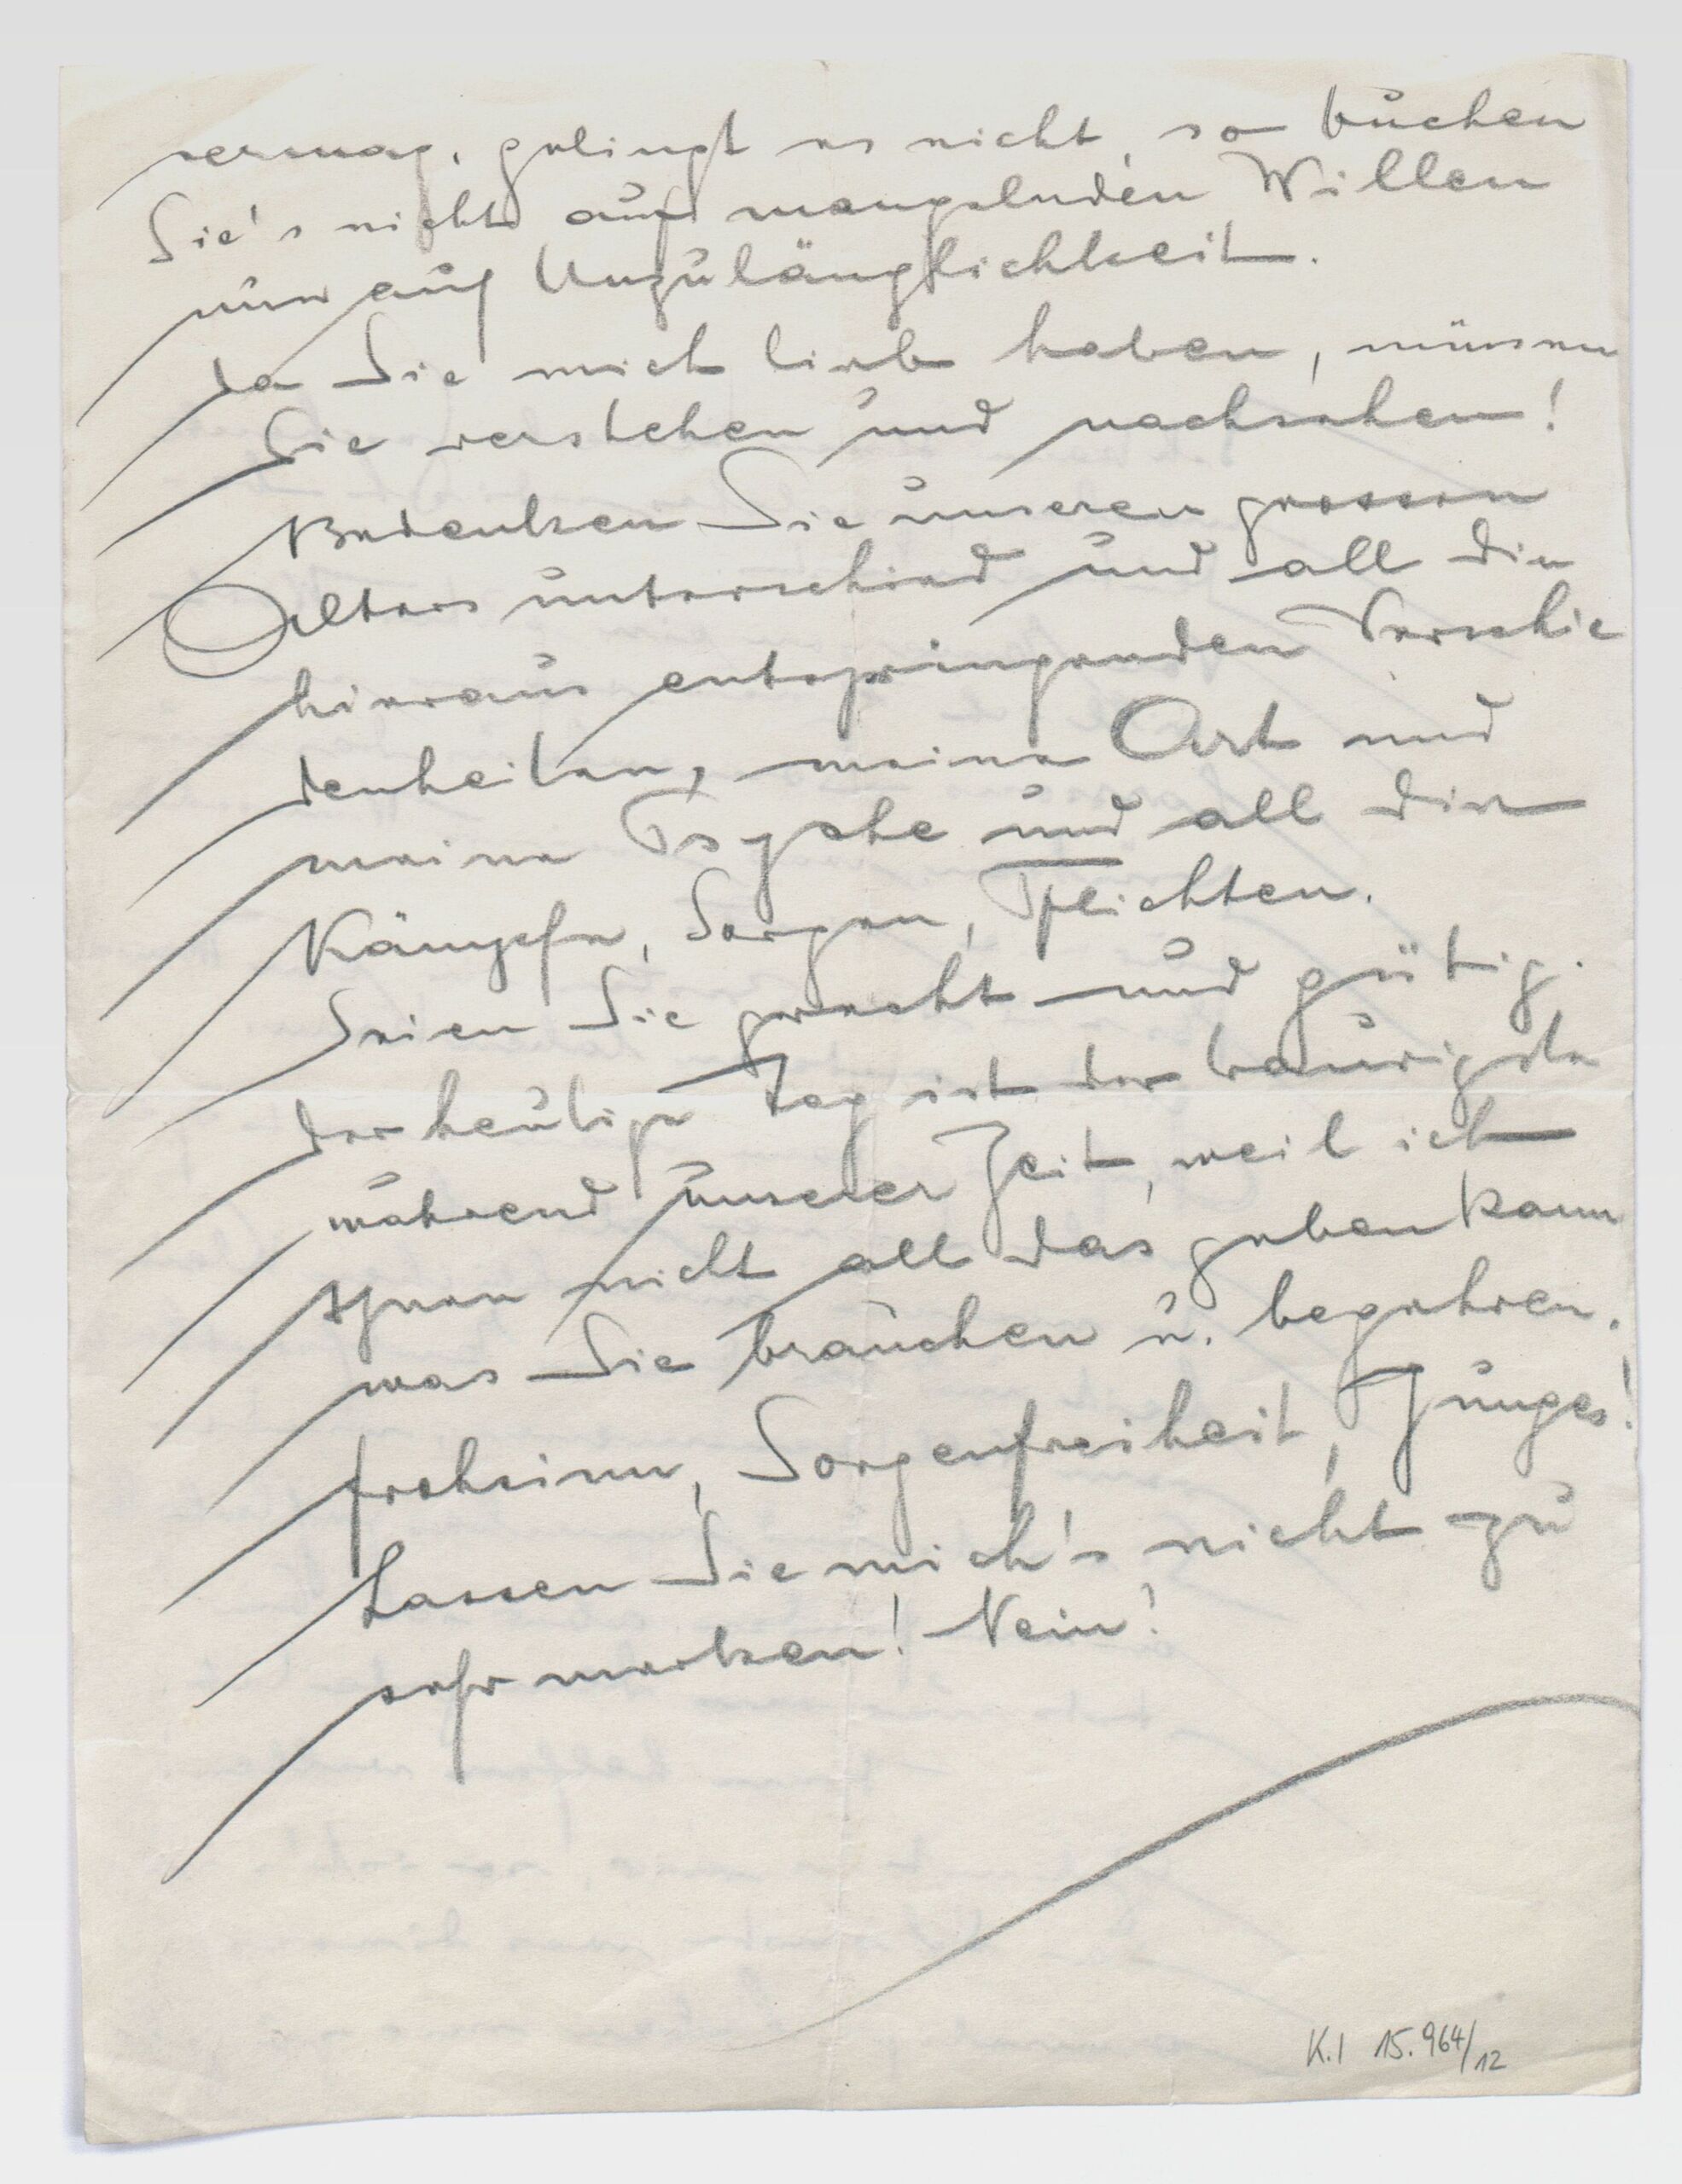 vermag, gelingt es nicht, so buchen
Sie's nicht auf mangelnden Willen
nur auf Unzulänglichkeit.
Da Sie mich lieb haben, müssen
Sie verstehen und nachsehen!
Bedenken Sie unseren grossen
Altersunterschied und all die
hieraus entspringenden Verschie
denheiten, meine Art und
meine Psyche und all die
Kämpfe, Sorgen, Pflichten.
Seien Sie gerecht und gütig.
Der heutige Tag ist der traurigste
während unserer Zeit, weil ich
Ihnen nicht all das geben kann
was Sie brauchen u. begehren.
Frohsinn, Sorgenfreiheit, Junges!
Lassen Sie mich's nicht zu
sehr merken! Nein!
K.I 15.964/12